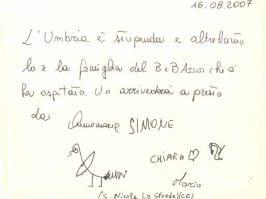 16.08.2007
L'Umbria è stupenda e altrettanto
lo è la famiglia del B&B Assisi che ci
ha ospitato. Un arrivederci a presto
da Annamaria SIMONE
CHIARA
Mario
(S. Nicola La Strada) (CE)